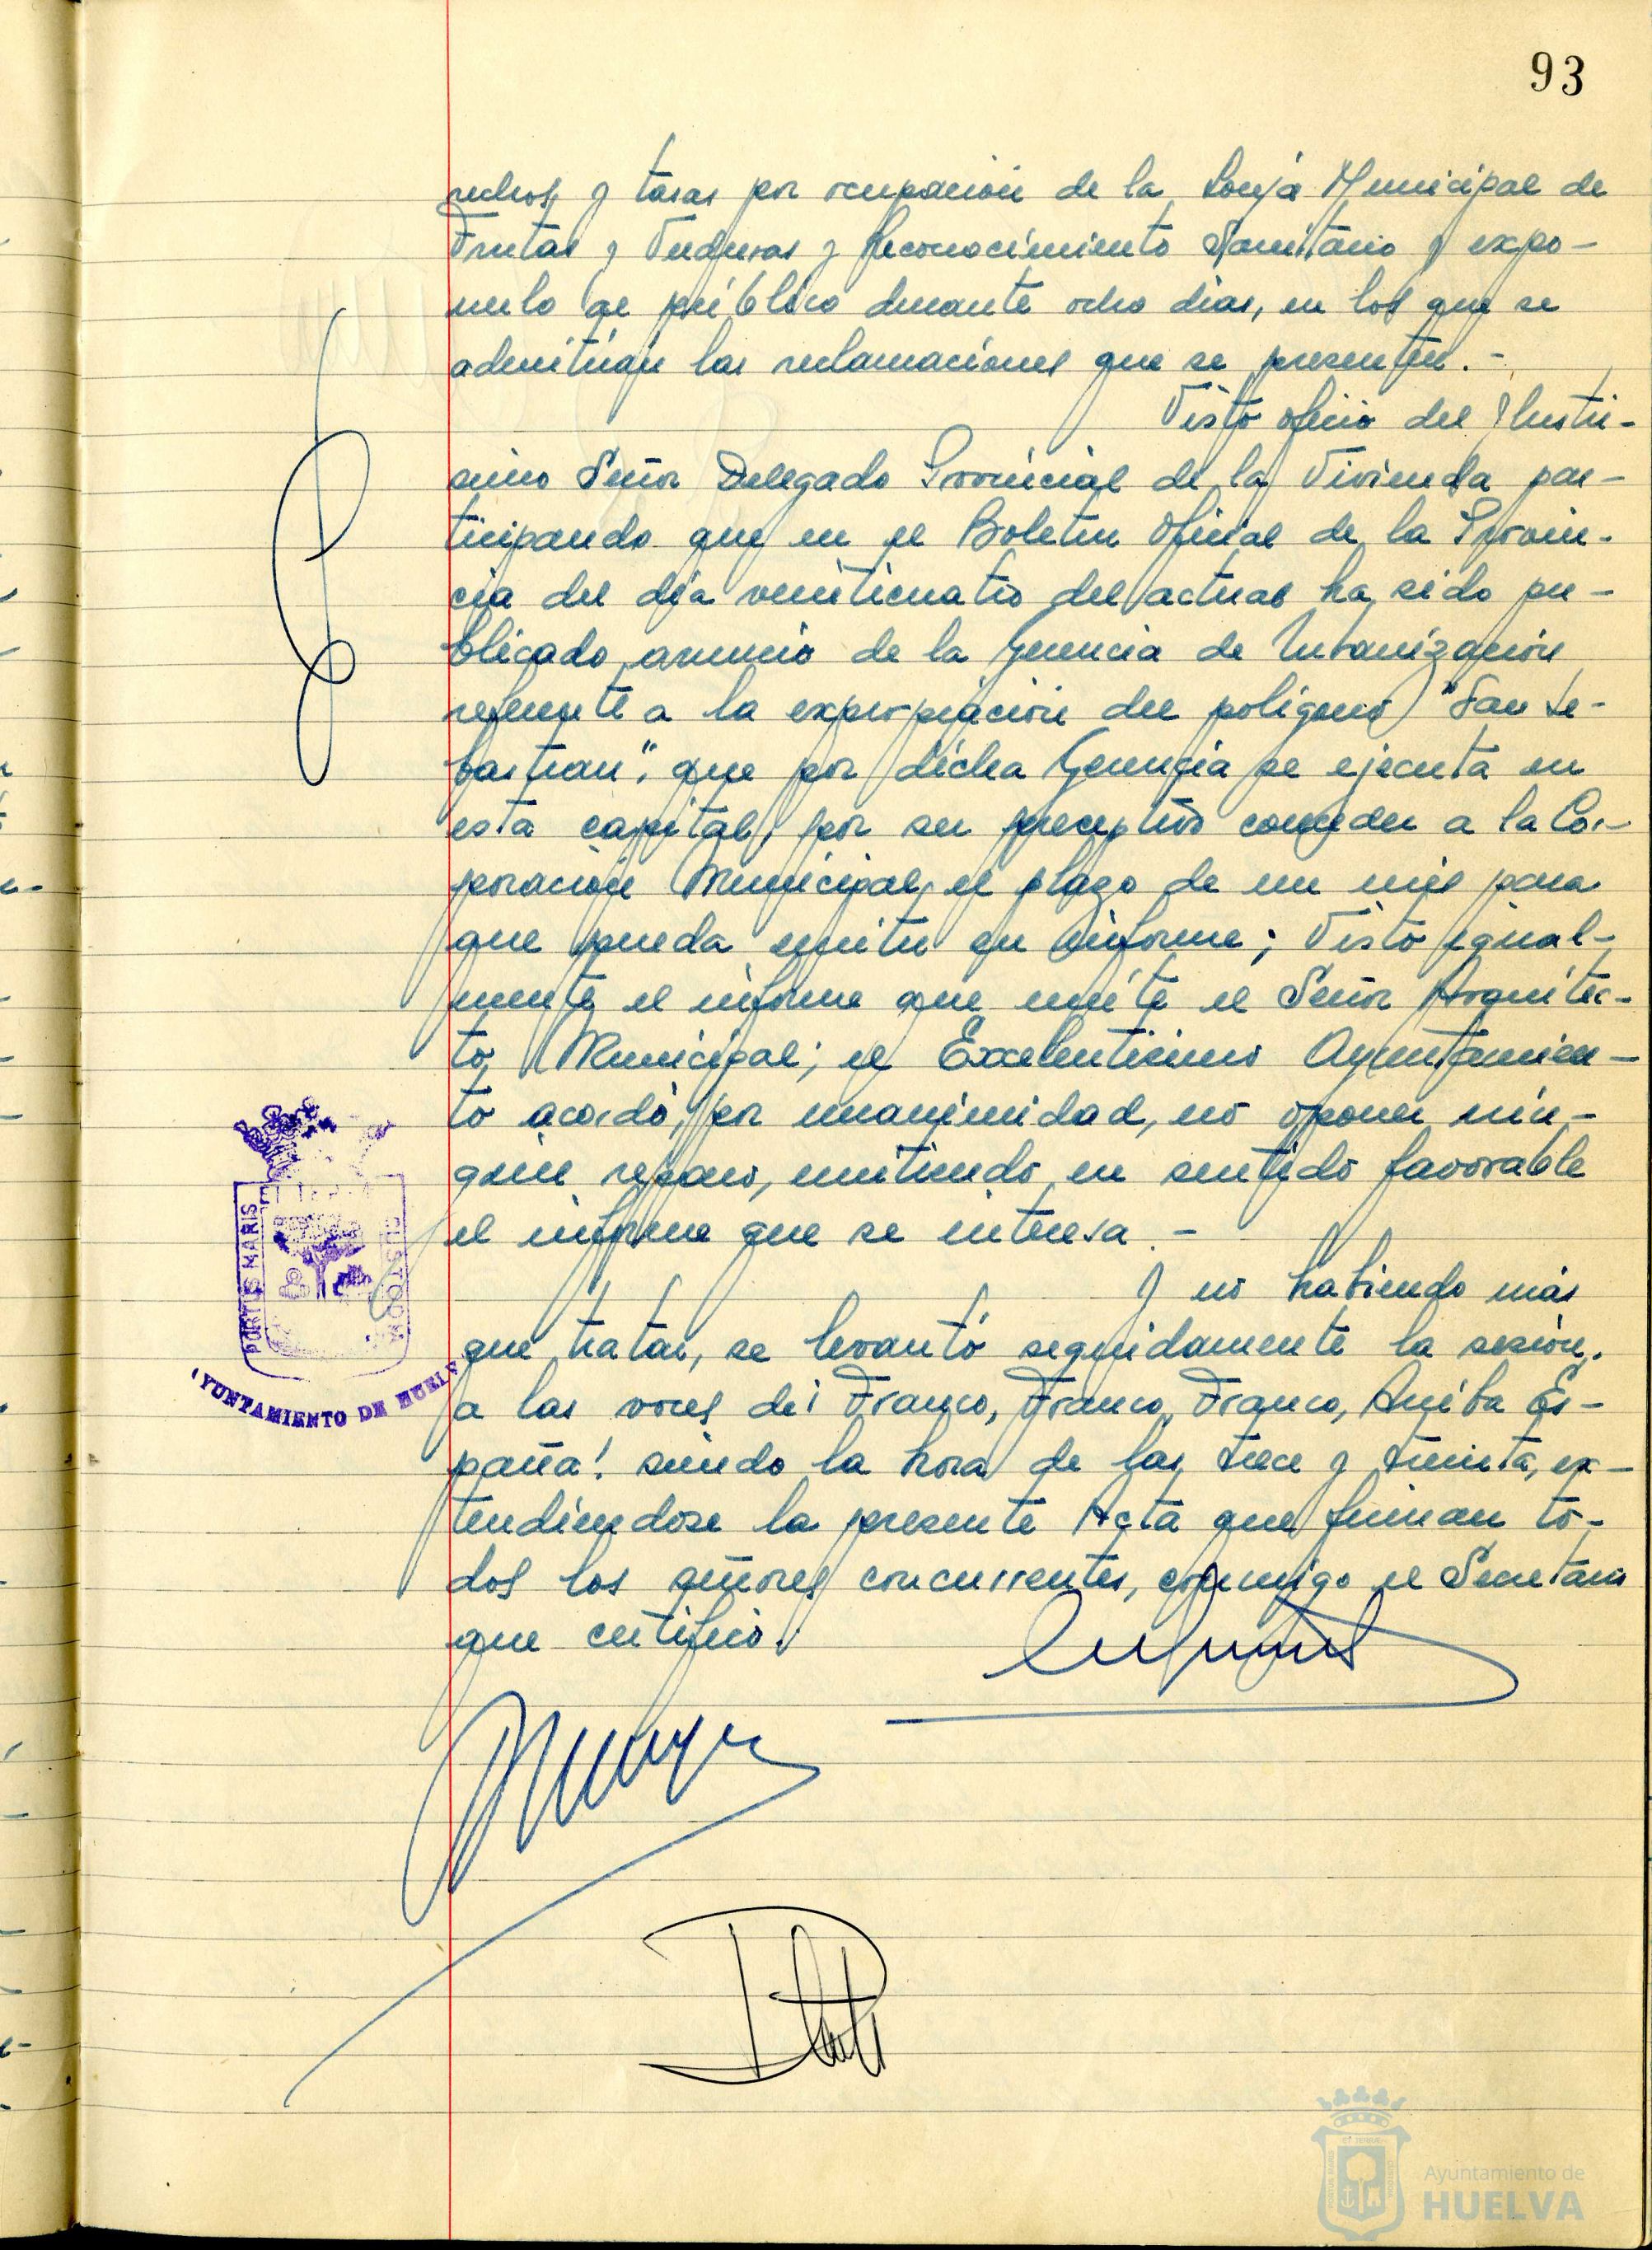 93
rechos y tasas por ocupación de la Lonja Municipal de
Frutas y Verduras y Reconocimiento Sanitario y expo-
nerlo al público durante ocho días, en los que se
admitirán las reclamaciones que se presenten.-
Visto oficio del Ilustri-
simo Señor Delegado Provincial de la Vivienda par-
ticipando que en el Boletin Oficial de la Provin-
cia del día veinticuatro del actual ha sido pu-
blicado anuncio de la Gerencia de Urbanización
referente a la expropiación del poligono "San Se-
bastian", que por dicha Gerencia se ejecuta en
esta capital, por ser preceptivo conceder a la Cor-
poración Municipal, el plazo de un mes para
que pueda emitir su informe; Visto igual-
mente el informe que emite el Señor Arquitec-
to Municipal; el Excelentisimo Ayuntamien-
to acordó, por unanimidad, no oponer nin-
gún reparo, emitiendo en sentido favorable
el informe que se interesa.-
Y no habiendo más
que tratar, se levantó seguidamente la sesión,
a las voces de ¡Franco, Franco, Franco, Arriba Es-
paña! siendo la hora de las trece y treinta, ex-
tendiendose la presente Acta que firman to-
dos los señores concurrentes, conmigo el Secretario
que certifico.
PORTUS MARIS
CUSTODIA
AYUNTAMIENTO DE HUELVA
Ayuntamiento de
HUELVA